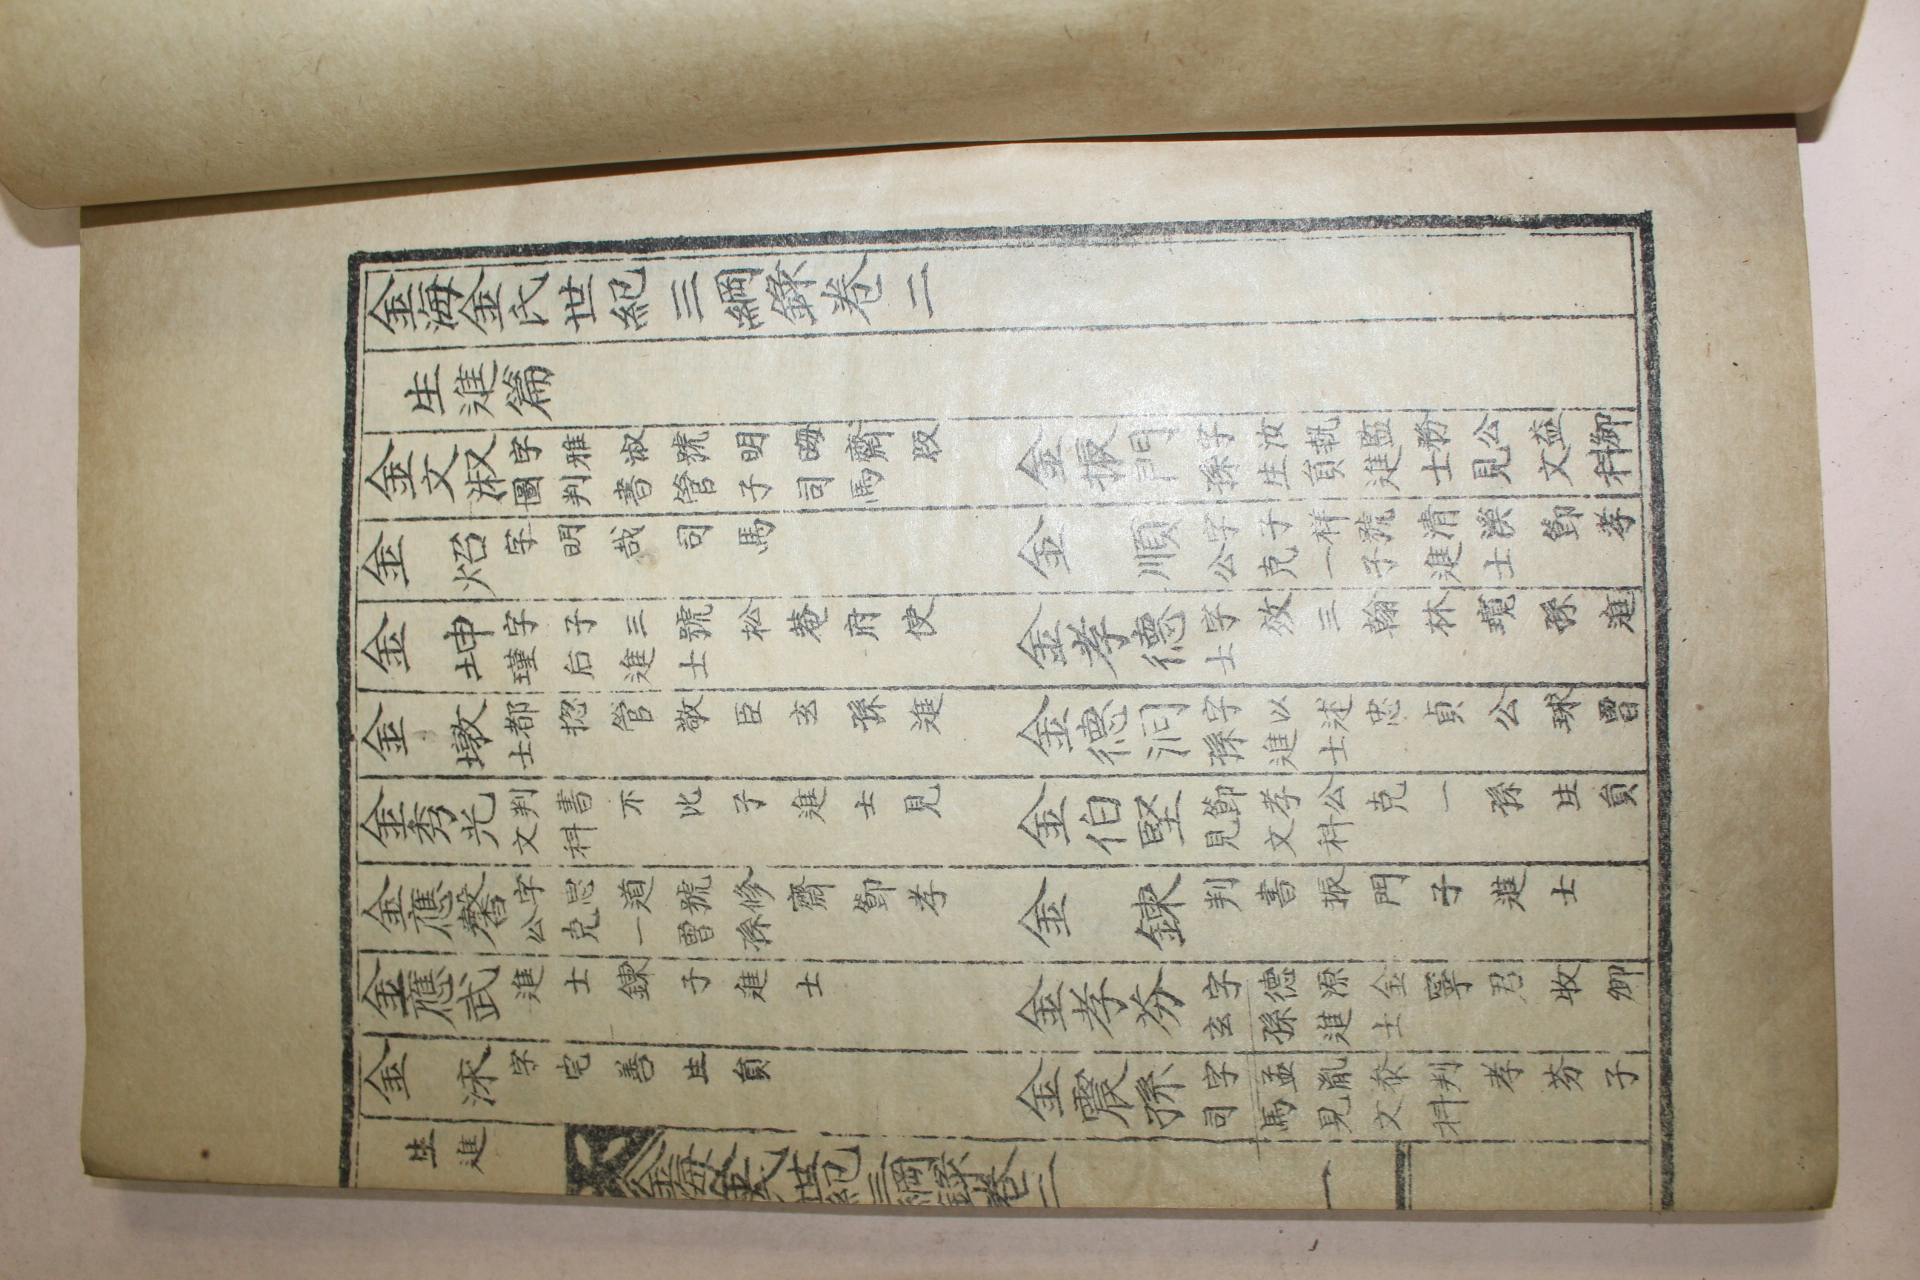 金海金氏世紀三綱錄卷二
生進篇
金文淑 字雅淑號明晦齋版圖判書管子司馬 金振門 字汝執監務公益御孫生員進士見文科
金炤 字明哉司馬 金順 字子祥號清溪節孝公克一子進士
金坤 字子三號松菴府使瑾后進士 金孝德 字效三翰林孫進士
金墩 都摠管敬臣玄孫進士 金德泂 字以述忠貞公琳曾孫進士
金秀光 判書不比子進士見文科 金伯堅 節孝公克一孫生員見文科
金應磬 字思道號修齋節孝公克一曾孫 金鍊 判書振門子進士
金應武 進士鍊子進士 金孝芬 字德源金寧君牧卿玄孫進士
金 字宅善生員 金震孫 字孟胤泰判孝芬子司馬見文科
生進
金海金氏世紀三綱錄卷二 一